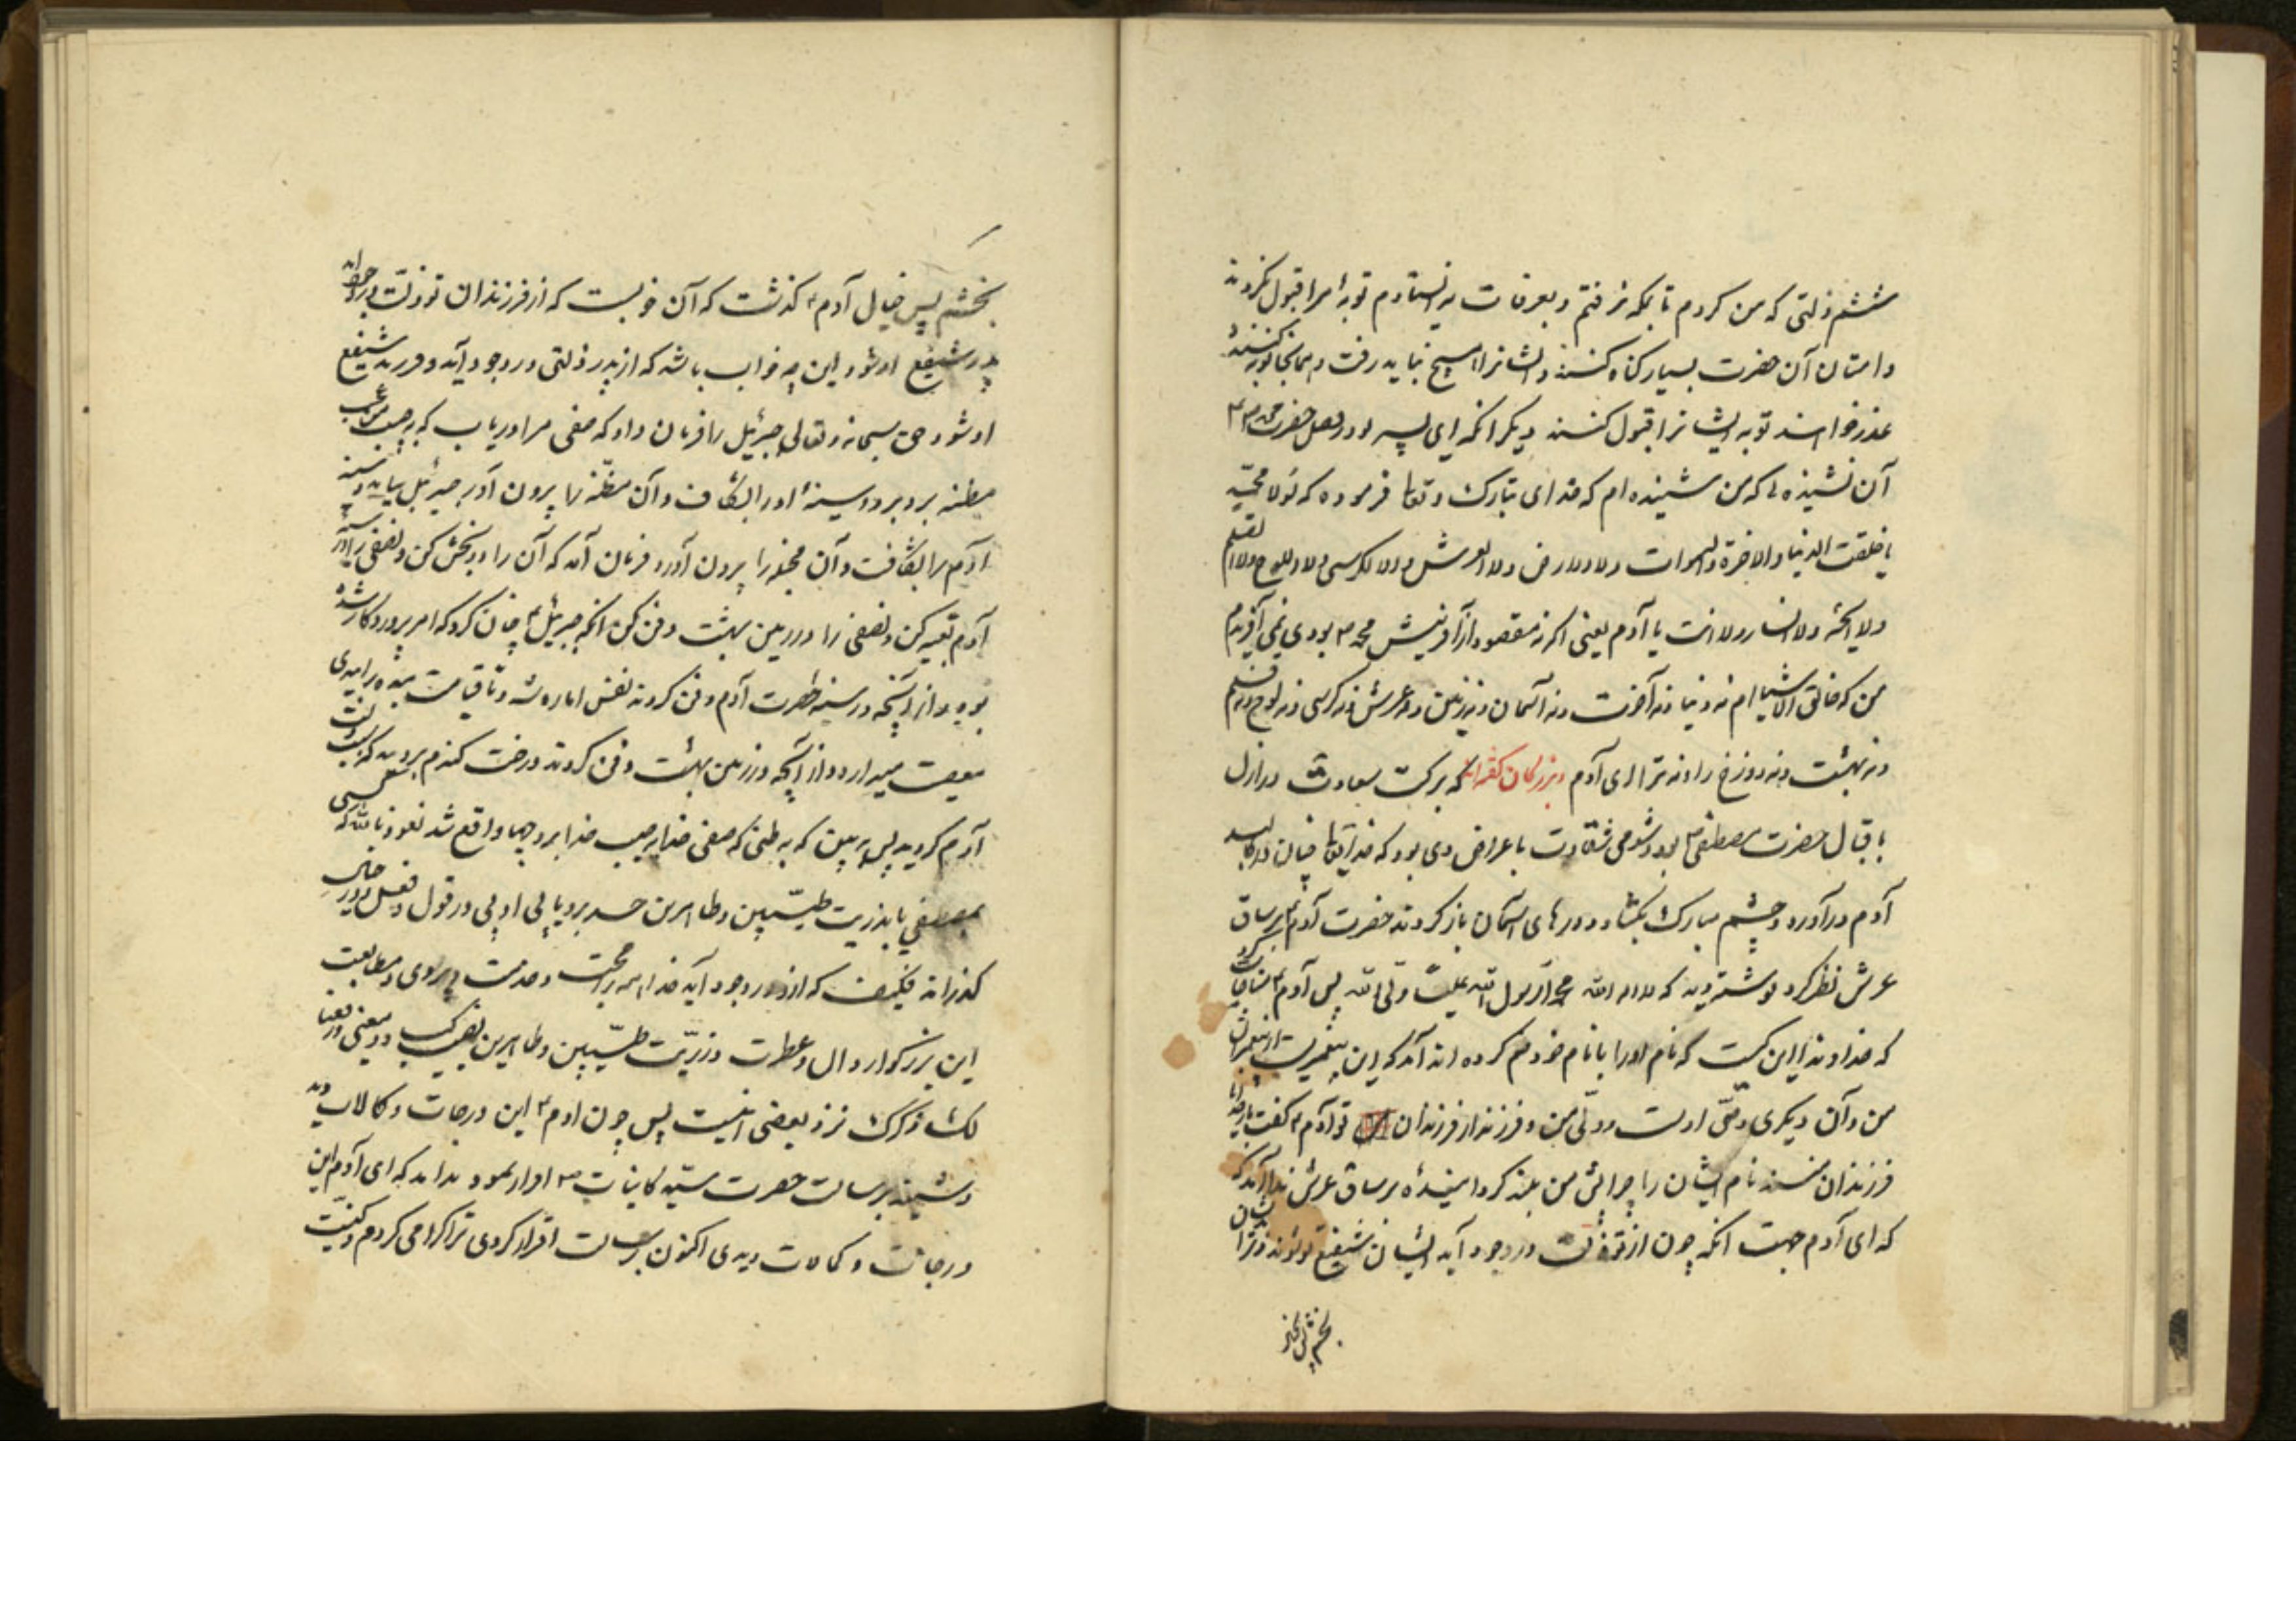 ششم زلتی که من کردم تا بمکه نرفتم و بعرفات نه ایستادم توبهٔ مرا قبول نکردند
و امتان آن حضرت بسیار گناه کنند و ایشانرا هیچ نباید رفت و همانجا توبه کنند
عذر خواهند توبه ایشانرا قبول کنند دیگر آنکه ای پسر تو در فضل حضرت محمد
آن نشنیدهٔ که من شنیده ام که خدای تبارک و تعالی فرموده که لولا محمد
ما خلقت الدنیا والاخرة والسموات ولا الارض ولا العرش ولا الکرسی ولا اللوح ولا القلم
ولا الجنة ولا النار ولا انت یا آدم یعنی اگر نه مقصود از آفرینش محمد بودی نمی آفریدم
من که خالق الاشیاام نه دنیا و نه آخرت و نه آسمان و نه زمین و نه عرش و نه کرسی و نه لوح و نه قلم
و نه بهشت و نه دوزخ را و نه ترا ای آدم و بزرگان گفته اند که برکت سعادت در ازل
باقبال حضرت مصطفی بود و شومی شقاوت باعراض وی بود که خدایتعالی جان در کالبد
آدم درآورد و چشم مبارک بگشاد و درهای آسمان باز کردند حضرت آدم بر ساق
عرش نظر کرد نوشته دید که لا اله الا الله محمد رسول الله علی ولی الله پس آدم مناجات کرد
که خداوندا این کیست که نام او را با نام خود ضم کرده ندا آمد که این پیغمبریست از پیغمبران
من و آن دیگری وصی اوست و ولی من و فرزند از فرزندان تو آدم گفت
فرزندان منند نام ایشان را چرا پیش من بلند کردانیدهٔ بر ساق عرش ندا آمد که
که ای آدم جهت آنکه چون از تو زلت در وجود آید ایشان شفیع تو شوند و ترا
بخشم پس
بخشم پس خیال آدم گذشت که آن خوبست که از فرزندان تو زلت
پدر شفیع او شود این چه خواب باشد که از پدر زلتی در وجود آید و فرزند شفیع
او شود حق سبحانه و تعالی جبرئیل را فرمان داد که صفی مرا دریاب که به حبیب من
مظنه برد برو و سینهٔ او را بشکاف و آن مظنه را بیرون آور جبرئیل بیامد و سینه
آدم را بشکافت و آن را بیرون آورد فرمان آمد که آن را دو بخش کن و نصفی را در سینه
آدم تعبیه کن و نصفی را در زمین بهشت دفن کن آنگه جبرئیل چنان کرد که امر پروردگار شده
بود و از آنچه در سینه حضرت آدم دفن کردند نفس اماره شد و تا قیامت بنده را بدی
میدارد و از آنچه در زمین بهشت دفن کردند درخت گندم برویید که سبب
آدم گردید پس ببین که به ظنی که صفی خدا به حبیب خدا برد چها واقع شد نعوذ بالله که کسی
بمصطفی یا بذریت طیبین و طاهرین حسد برد یا بی ادبی در قول و فعل
گذراند فکیف که از او در وجود آید خدا همه را محبت و خدمت و پیروی و متابعت
این بزرگوار و آل و عترت و ذریت طیبین و طاهرین نصیب کند
لک ذکرک نزد بعضی اینست پس چون آدم این درجات و کمالات دید
و شنید برسالت حضرت سید کاینات اقرار نمود ندا آمد که ای آدم این
درجات و کمالات دیدی اکنون برسالت اقرار کردی ترا گرامی کردم و کنیت